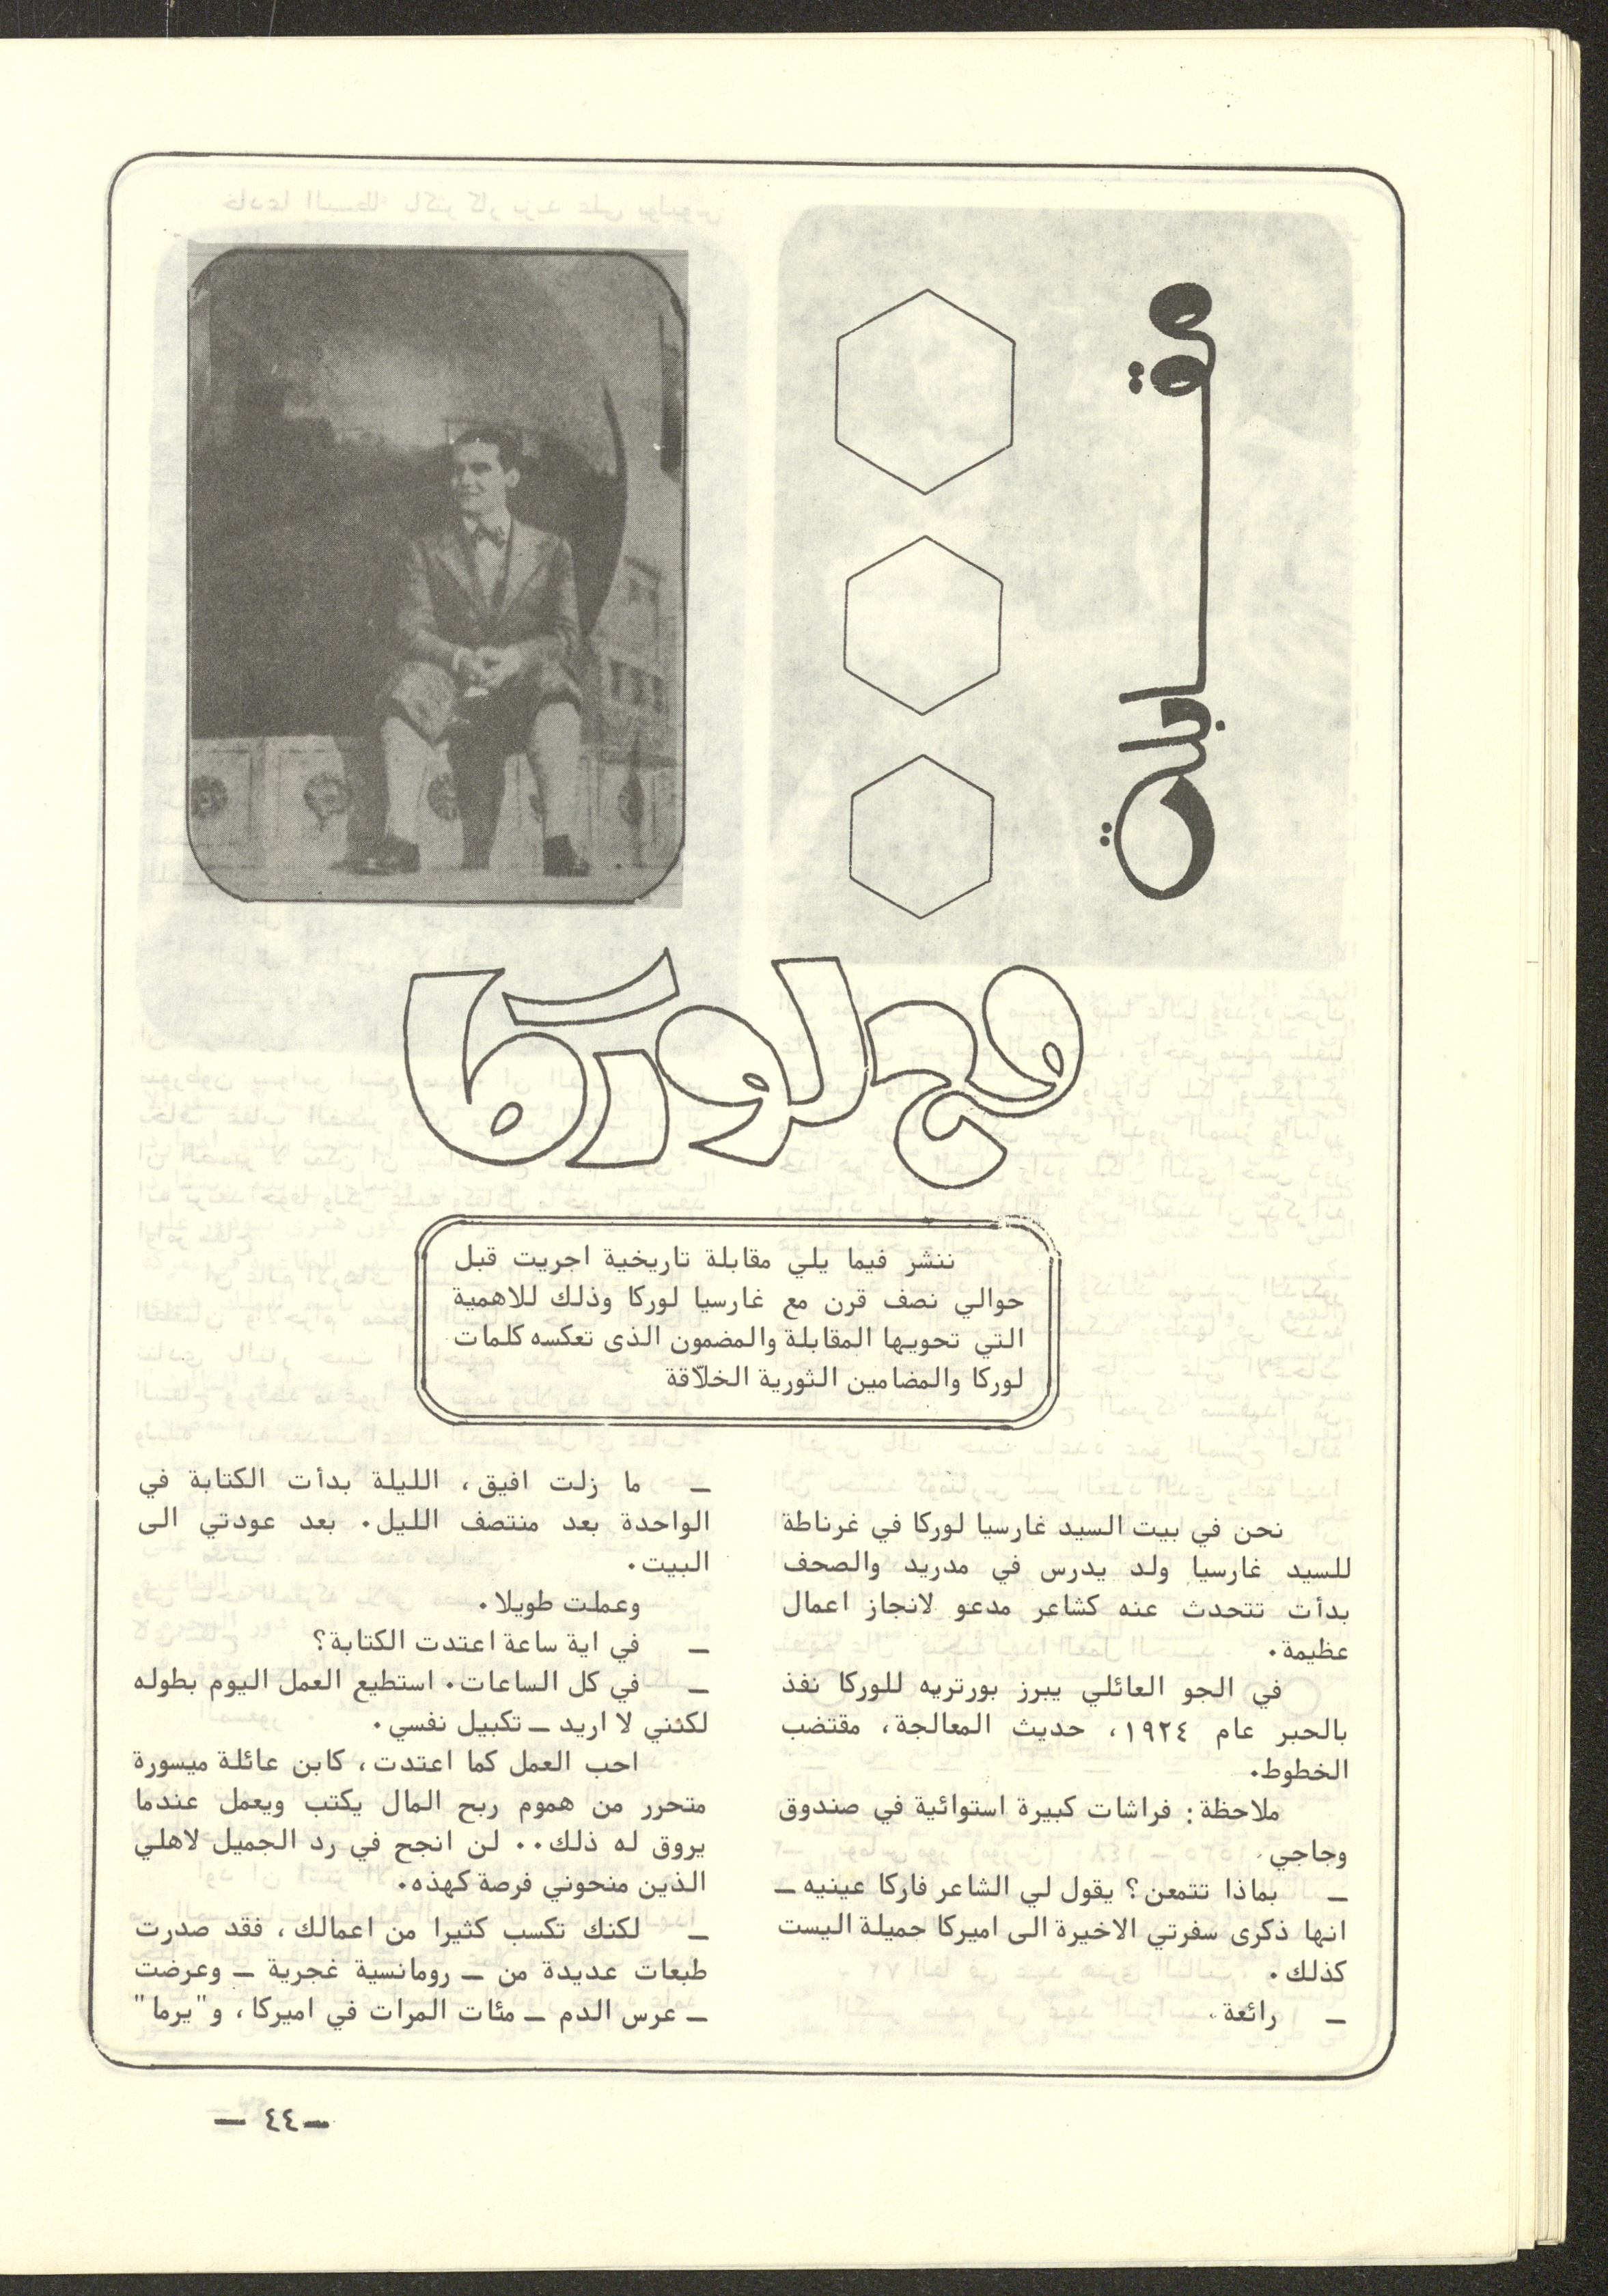 مقابلة
مع لوركا
ننشر فيما يلي مقابلة تاريخية اجريت قبل
حوالي نصف قرن مع غارسيا لوركا وذلك للاهمية
التي تحويها المقابلة والمضمون الذى تعكسه كلمات
لوركا والمضامين الثورية الخلاّقة
نحن في بيت السيد غارسيا لوركا في غرناطة
للسيد غارسيا ولد يدرس في مدريد والصحف
بدأت تتحدث عنه كشاعر مدعو لانجاز اعمال
عظيمة.
في الجو العائلي يبرز بورتريه للوركا نفذ
بالحبر عام ١٩٢٤، حديث المعالجة، مقتضب
الخطوط.
ملاحظة: فراشات كبيرة استوائية في صندوق
وجاجي.
ـ بماذا تتمعن؟ يقول لي الشاعر فاركا عينيه ـ
انها ذكرى سفرتي الاخيرة الى اميركا جميلة اليست
كذلك.
ـ رائعة.
ـ ما زلت افيق، الليلة بدأت الكتابة في
الواحدة بعد منتصف الليل. بعد عودتي الى
البيت.
وعملت طويلا.
ـ في اية ساعة اعتدت الكتابة؟
ـ في كل الساعات. استطيع العمل اليوم بطوله
لكنني لا اريد ـ تكبيل نفسي.
احب العمل كما اعتدت، كابن عائلة ميسورة
متحرر من هموم ربح المال يكتب ويعمل عندما
يروق له ذلك.. لن انجح في رد الجميل لاهلي
الذين منحوني فرصة كهذه.
ـ لكنك تكسب كثيرا من اعمالك، فقد صدرت
طبعات عديدة من ـ رومانسية غجرية ـ وعرضت
ـ عرس الدم ـ مئات المرات في اميركا، و"يرما"
ـ ٤٤ ـ